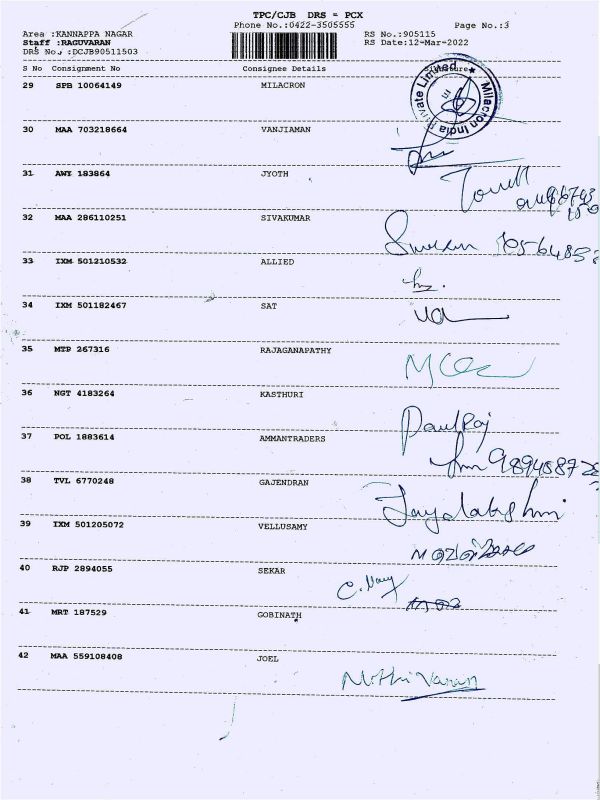 TPC/CJB DRS = PCX
Phone No.:0422-3505555 Page No.:3
Area :KANNAPPA NAGAR RS No.:905115
Staff :RAGUVARAN RS Date:12-Mar-2022
DRS No.:DCJB90511503
S No Consignment No Consignee Details Signature
29 SPB 10064149 MILACRON
Milacron India Private Limited
30 MAA 703218664 VANJIAMAN
31 AWY 183864 JYOTH
32 MAA 286110251 SIVAKUMAR
33 IXM 501210532 ALLIED
34 IXM 501182467 SAT
35 MTP 267316 RAJAGANAPATHY
36 NGT 4183264 KASTHURI
Paulraj
37 POL 1883614 AMMANTRADERS
38 TVL 6770248 GAJENDRAN
Jayalakshmi
39 IXM 501205072 VELLUSAMY
40 RJP 2894055 SEKAR
41 MRT 187529 GOBINATH
42 MAA 559108408 JOEL